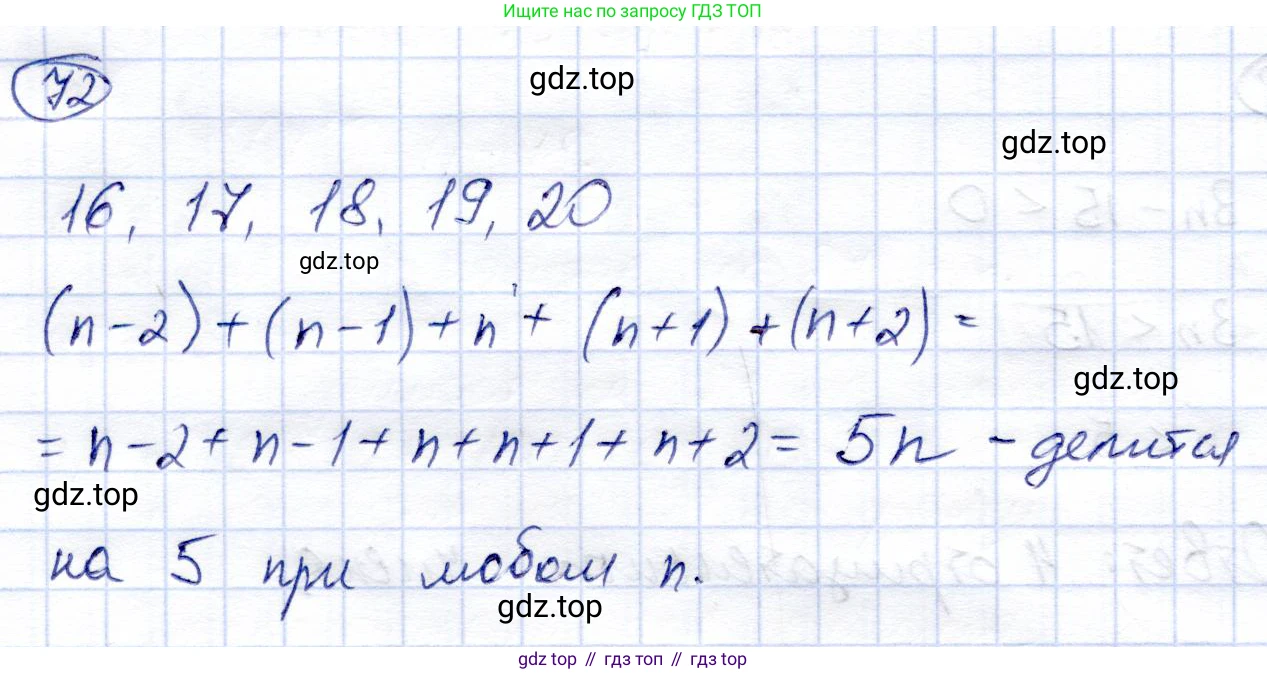 Ищите нас по запросу ГДЗ ТОП
72
gdz.top
gdz.top
16, 17, 18, 19, 20
gdz.top
(n-2)+(n-1)+n+(n+1)+(n+2)=
gdz.top
=n-2+n-1+n+n+1+n+2=5n - делится
gdz.top
на 5 при любом n.
gdz.top
gdz top // гдз топ // gdz top